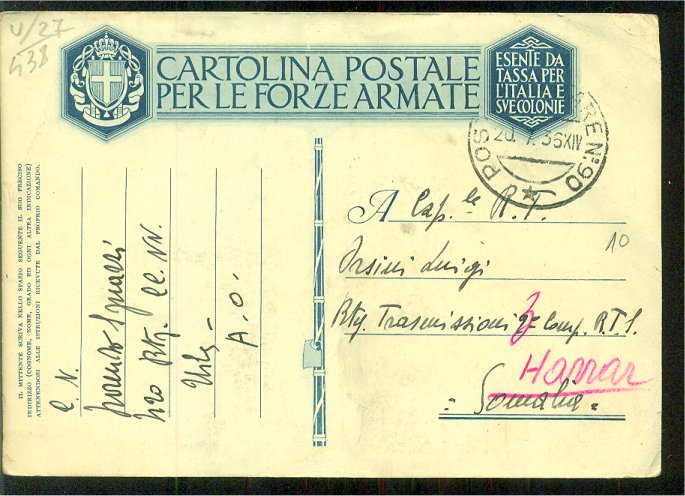 V/27
438
CARTOLINA POSTALE
PER LE FORZE ARMATE
ESENTE DA
TASSA PER
L'ITALIA E
SVE COLONIE
POS RE N° 90
20. 7. 36 XIV
IL MITTENTE SCRIVA NELLO SPAZIO SEGUENTE IL SUO PRECISO
INDIRIZZO (COGNOME, NOME, GRADO ED OGNI ALTRA INDICAZIONE)
ATTENENDOSI ALLE ISTRUZIONI RICEVUTE DAL PROPRIO COMANDO.
C. N.
Btg. CC. NN.
A. O.
A Cap.le R.T.
Orsini Luigi
Btg. Trasmissioni 2ª Comp. R.T.S.
3
Harrar
Somalia
10